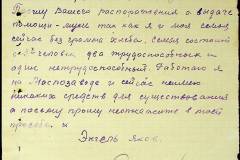 Прошу Вашего распоряжения о выдаче
помощи - муки так как я и моя семья
сейчас без грамма хлеба. Семья состоит
человек два трудоспособных и
один нетрудоспособный. Работаю я
на и сейчас не имею
никаких средств для существования
а посему прошу неоткажите в моей
просьбе.
Энгель Яков.